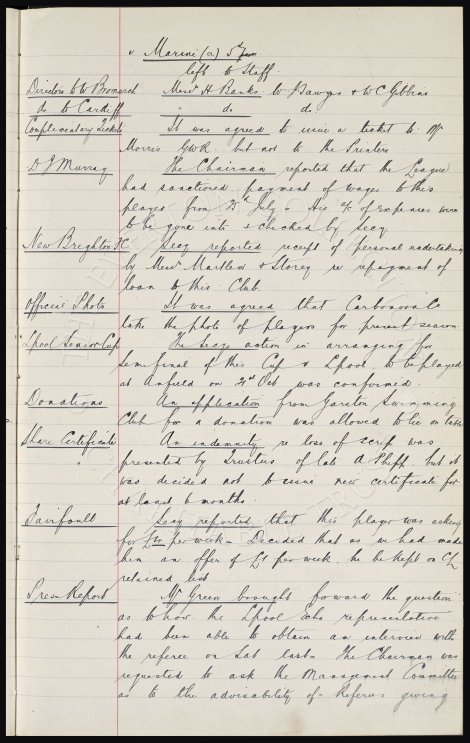 v Marine (a) 5th
left to Staff
Directors to to Bromarch Messrs H Banks to Sawyer & W C Gibbins
do to Cardiff do do
Complimentary Tickets It was agreed to issue a ticket to Mr
Morris GWR. but not to the Printers.
D J Murray The Chairman reported that the League
had sanctioned payment of wages to this
player from July - His a/c of expenses were
to be gone into & checked by Secy.
New Brighton FC Secy reported receipt of personal undertaking
by Messrs Martled & Storey re repayment of
loan to this Club.
Official Photo It was agreed that Carbonora Co
take the photo of players for present season.
Lpool Senior Cup The Secys action in arranging for
Semifinal of this Cup v Lpool to be played
at Anfield on 21st Oct was confirmed.
Donations An application from Garston Swimming
Club for a donation was allowed to lie on table
Share Certificate An indemnity re loss of scrip was
presented by Trustees of late A but it
was decided not to issue new certificate for
at least 6 months.
Fairfoull Secy reported that this player was asking
for per week - Decided that as we had made
him an offer of per week, he be kept on C/L
retained list
Press Report Mr Green brought forward the question
as to how the Lpool Echo representative
had been able to obtain an interview with
the referee on Sat last - The Chairman was
requested to ask the Management Committee
as to the advisability of - Referees giving